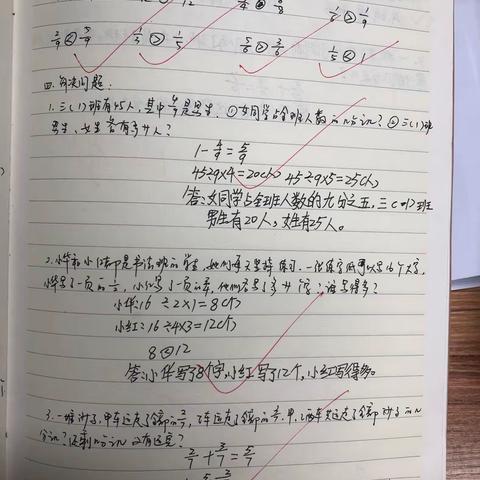 2/9 < 5/9 1/3 > 1/5 5/6 > 3/6 1/5 < 1
四.解决问题:
1.三(1)班有45人,其中4/9是男生.①女同学占全班人数的几分之几?②三(1)班
男生、女生各有多少人?
1-4/9=5/9
45÷9×4=20(人) 45÷9×5=25(人)
答:女同学占全班人数的九分之五,三(1)班
男生有20人,女生有25人。
2.小华和小红都是书法班的学生,她们每天坚持练习.一张练字纸可以写16个大字,
小华写了一页的1/2,小红写了一页的3/4,他们各写了多少个字?谁写得多?
小华:16÷2×1=8(个)
小红:16÷4×3=12(个)
8<12
答:小华写了8个字,小红写了12个,小红写得多。
3.一堆沙子,甲车运走了全部的2/7,乙车运走了全部的3/7.甲、乙两车共运走了全部沙子的几
分之几?还剩几分之几没有运走?
2/7+3/7=5/7